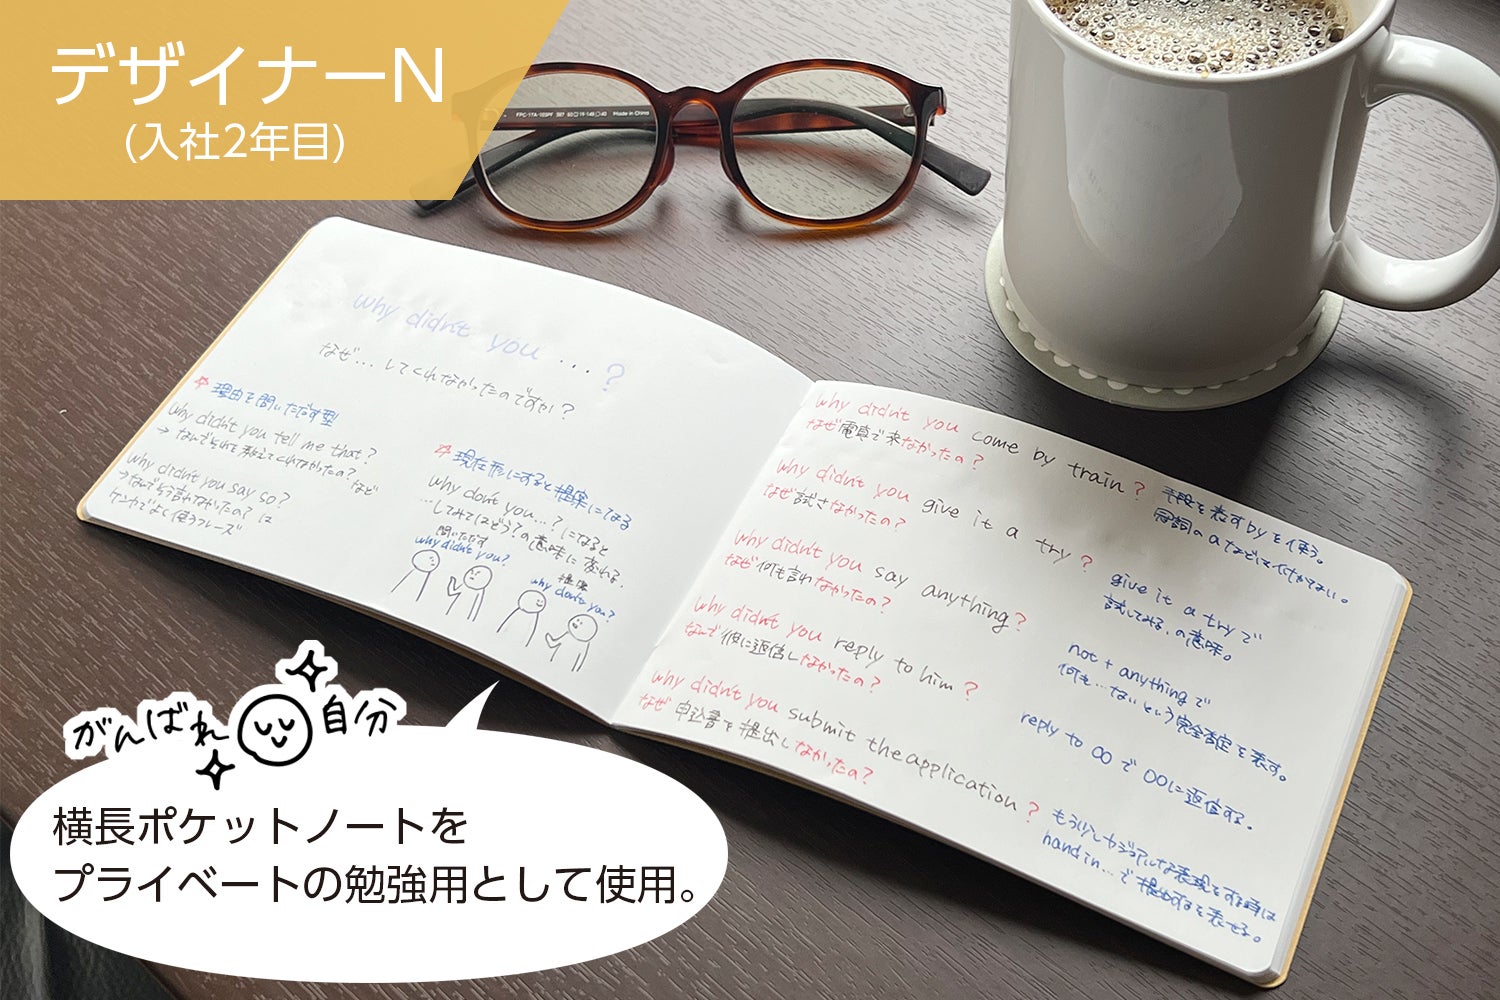 デザイナーN
(入社2年目)
FPC-17A
Made in China
why didn't you ...?
なぜ...してくれなかったのですか?
☆理由を問いただす型
why didn't you tell me that?
→なんでそれを教えてくれなかったの? など
why didn't you say so?
→なんでそう言わなかったの? は
ケンカでよく使うフレーズ
☆現在形にすると提案になる
why don't you...? になると
...してみてはどう?の意味に変わる.
問いただす
why didn't you?
提案
why don't you?
why didn't you come by train?
なぜ電車で来なかったの?
手段を表すbyを使う。
冠詞のaなどは付かない。
why didn't you give it a try?
なぜ試さなかったの?
give it a tryで
試してみる.の意味。
why didn't you say anything?
なぜ何も言わなかったの?
not + anythingで
何も...ないという完全否定を表す。
why didn't you reply to him?
なんで彼に返信しなかったの?
reply to ○○で○○に返信する。
why didn't you submit the application?
なぜ申込書を提出しなかったの?
もう少しカジュアルな表現をする時は
hand in...で提出するを表せる。
がんばれ自分
横長ポケットノートを
プライベートの勉強用として使用。